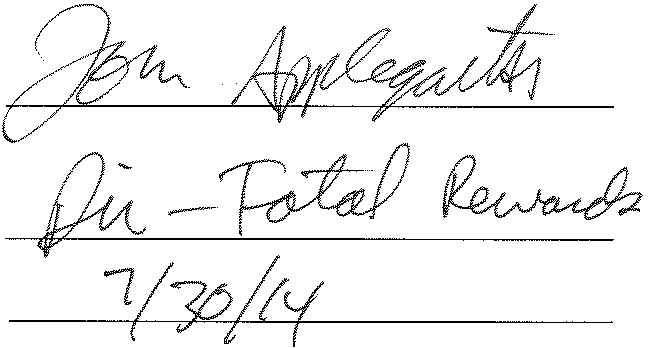 Tom Applegarth
Dir - Total Rewards
7/30/14